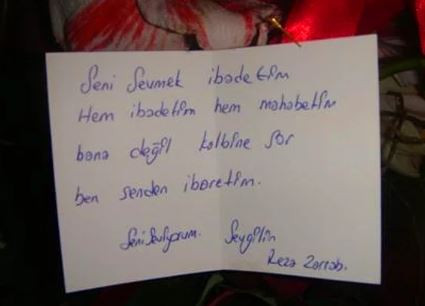 Seni Sevmek ibadetim
Hem ibadetim hem mahabetim
bana değil kalbine Sor
ben senden ibaretim.
Seni Seviyorum. Sevgilin
Reza Zarrab.